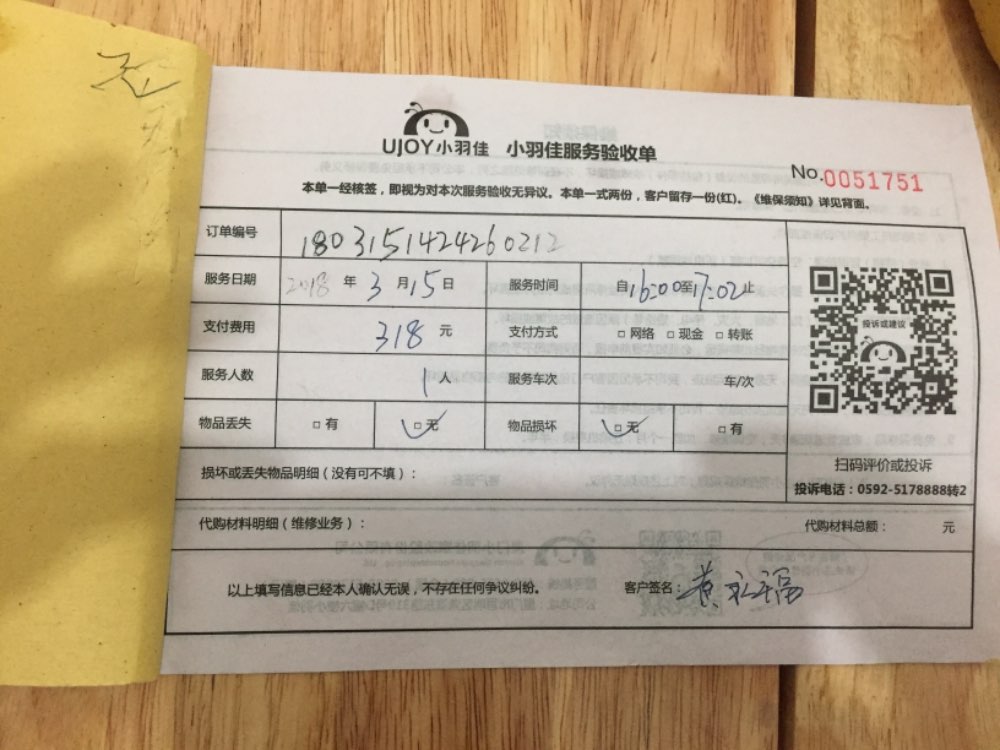 UJOY小羽佳 小羽佳服务验收单
No.0051751
本单一经核签，即视为对本次服务验收无异议。本单一式两份，客户留存一份(红)。《维保须知》详见背面。
订单编号 1803151424260212
服务日期 2018 年 3 月 15 日 服务时间 自 16:00 至 17:02 止
支付费用 318 元 支付方式 □ 网络 □ 现金 □ 转账
服务人数 1 人 服务车次 车/次
物品丢失 □ 有 □ 无 物品损坏 □ 无 □ 有
投诉或建议
扫码评价或投诉
投诉电话：0592-5178888转2
损坏或丢失物品明细（没有可不填）：
代购材料明细（维修业务）： 代购材料总额： 元
以上填写信息已经本人确认无误，不存在任何争议纠纷。 客户签名：黄永福